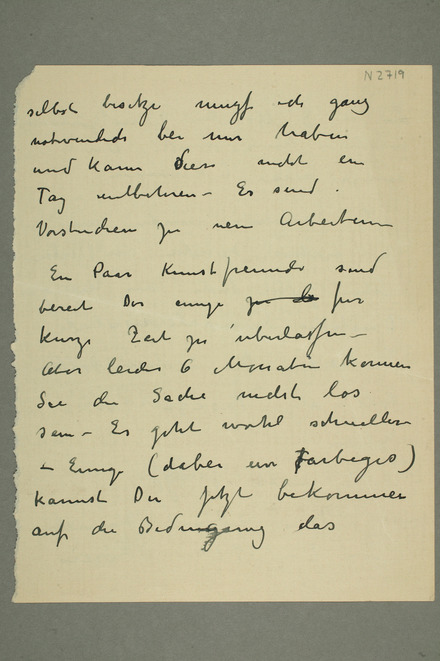 N 2719
selbst besitze muss ich ganz
notwendich bei mir haben
und kann diese nicht ein
Tag entbehren – Es sind
Vorstudien zu neuen Arbeiten
Ein Paar Kunstfreunde sind
bereit Dir einige für
kurze Zeit zu überlassen –
Aber leider 6 Monaten können
Sie die Sache nicht los
sein – Es geht wohl schneller
– Einige (dabei ein farbiges)
kannst Du jetzt bekommen
auf die Bedingung das